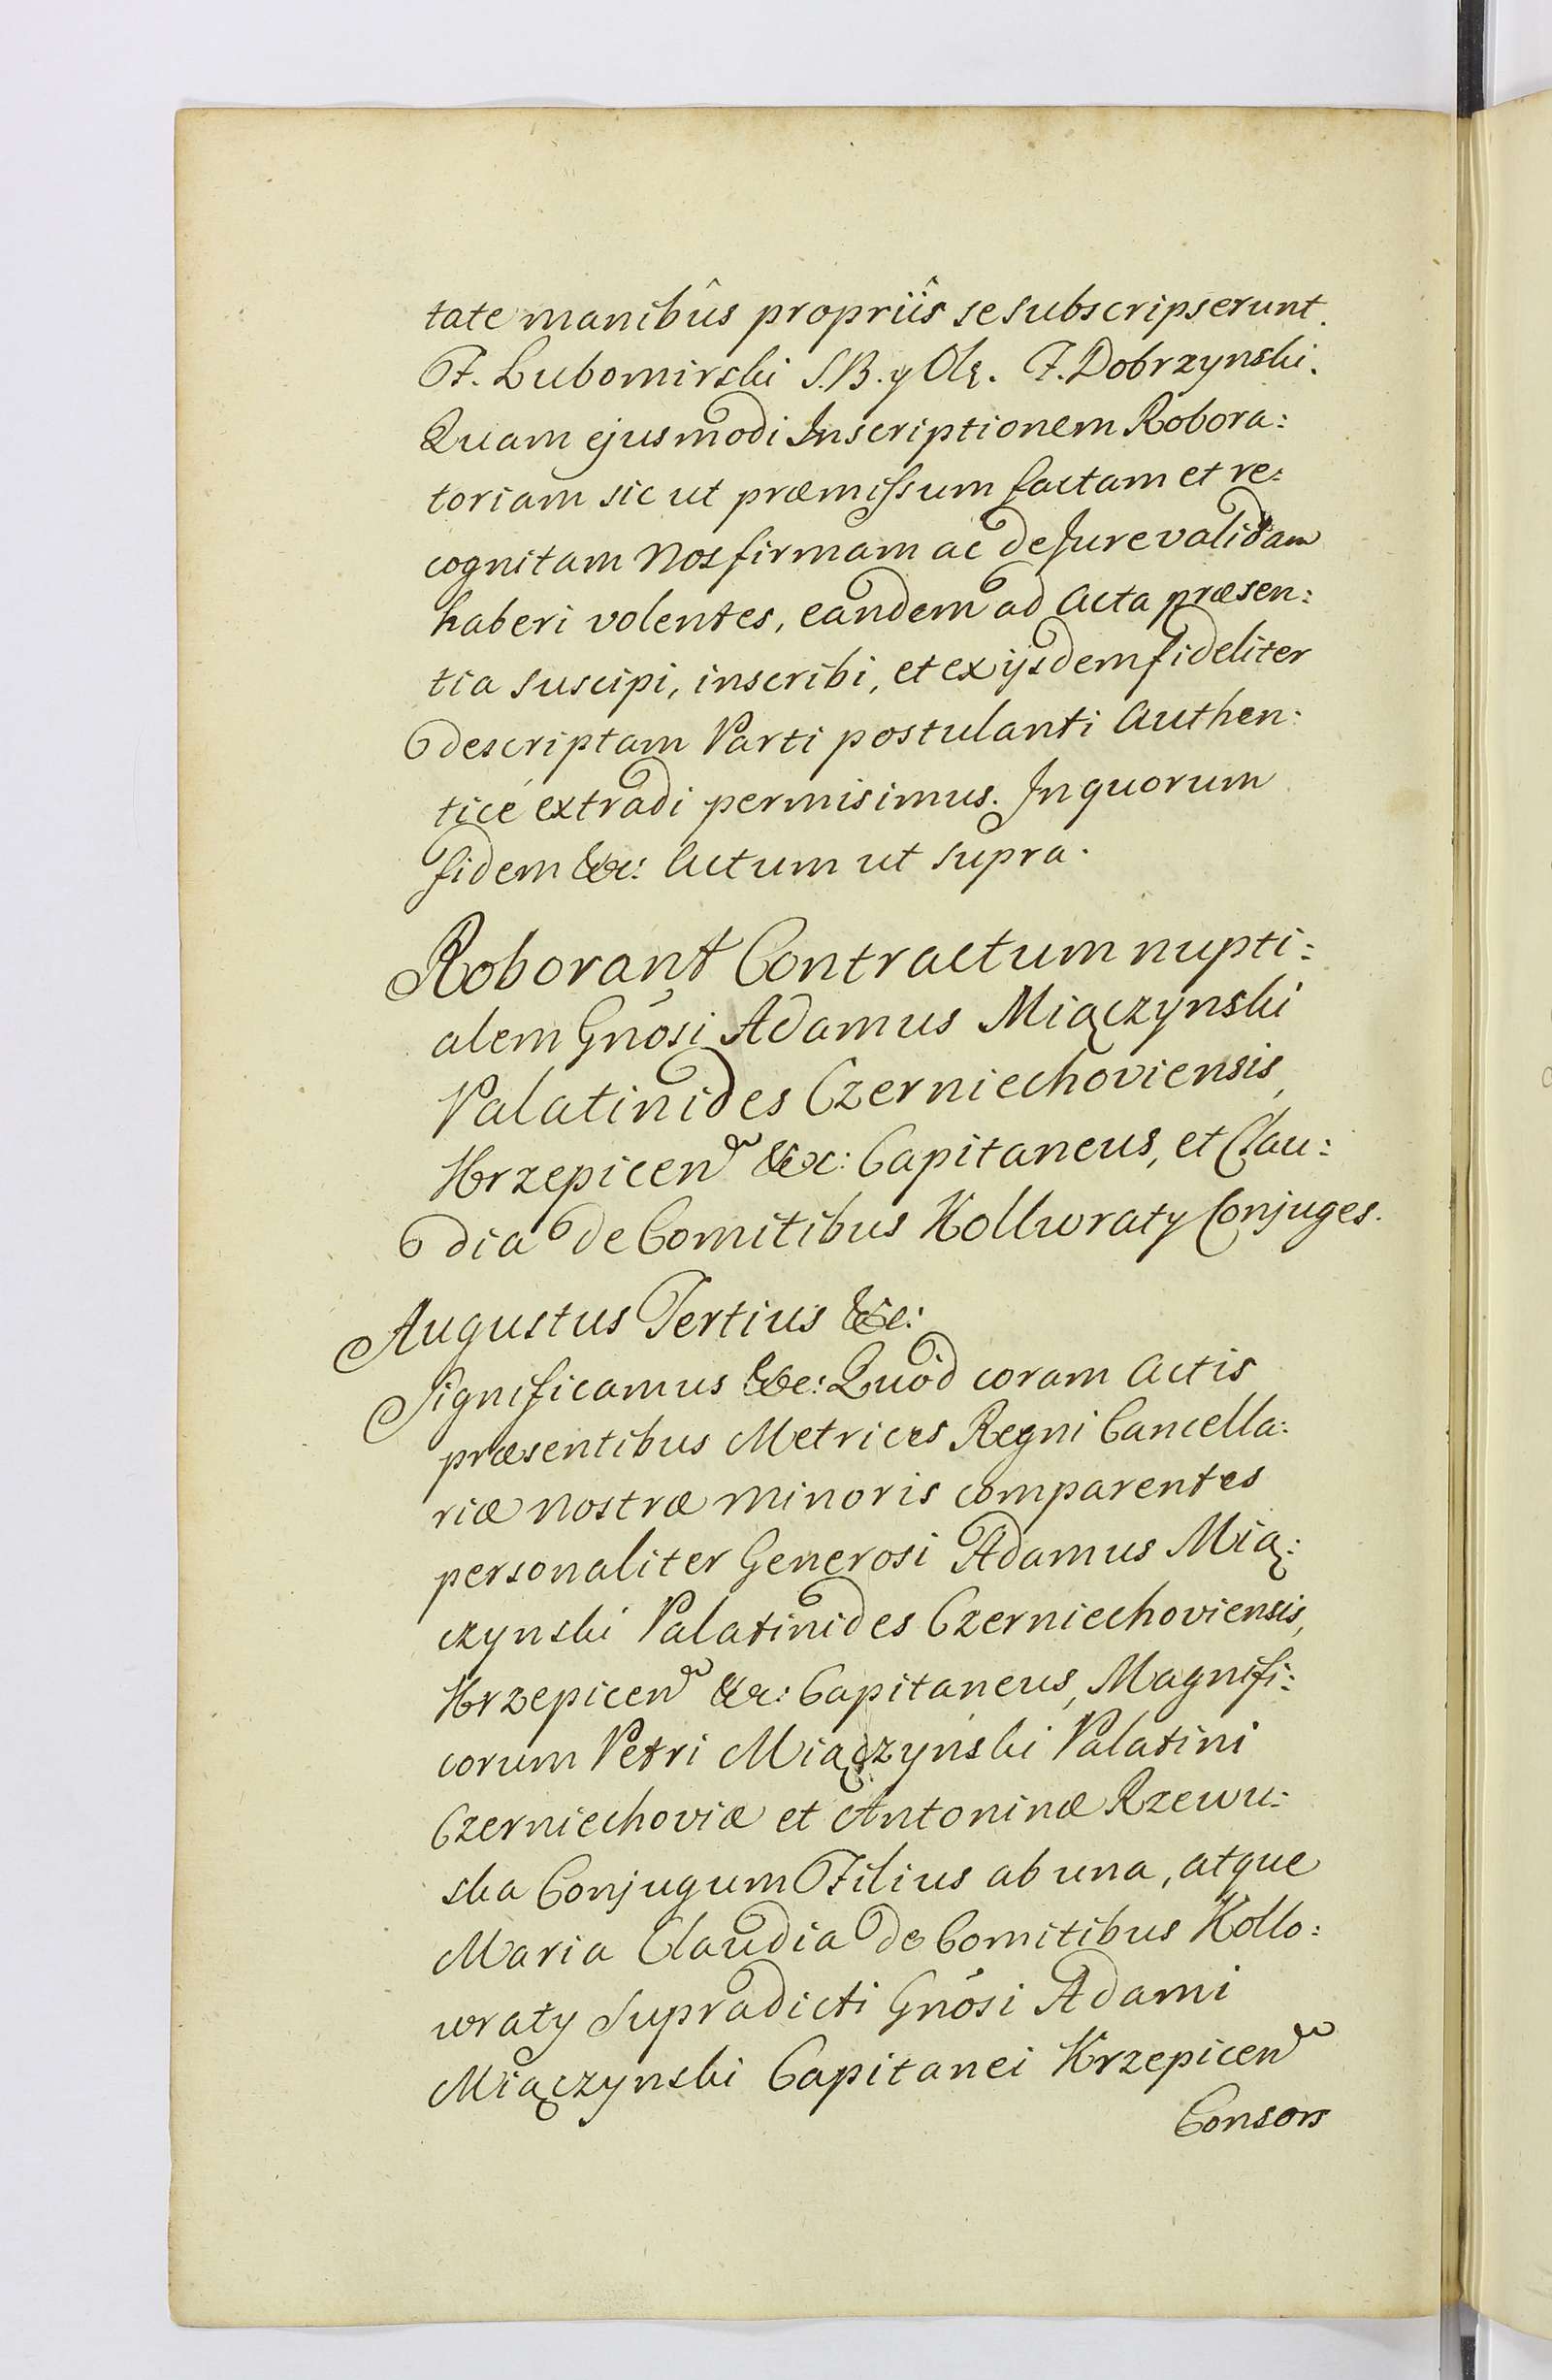 tate manibûs propriîs se subscripserunt.
F. Lubomirski S. B. y Ol. F. Dobrzynski.
Quam ejusmodi Inscriptionem Robora:
toriam sic ut præmissum factam et re:
cognitam Nos firmam ac de Jure validam
haberi volentes, eandem ad Acta præsen:
tia suscipi, inscribi, et ex ijsdem fideliter
descriptam Parti postulanti Authen:
ticé extradi permisimus. In quorum
fidem &c: Actum ut supra.
Roborant Contractum nupti:
alem Gnosi Adamus Miączynski
Palatinides Czerniechoviensis,
Krzepicen &c: Capitaneus, et Clau:
dia de Comitibus Kollwraty Conjuges.
Augustus Tertius &c:
Significamus &c: Quòd coram Actis
præsentibus Metrices Regni Cancella:
riæ Nostræ Minoris comparentes
personaliter Generosi Adamus Mią:
czynski Palatinides Czerniechoviensis,
Krzepicen &c: Capitaneus, Magnifi:
corum Petri Miączyński Palatini
Czerniechoviæ et Antoninæ Rzewu:
ska Conjugum Filius ab una, atque
Maria Claudia de Comitibus Kollo:
wraty Supradicti Gnosi Adami
Miączynski Capitanei Krzepicen
Consors